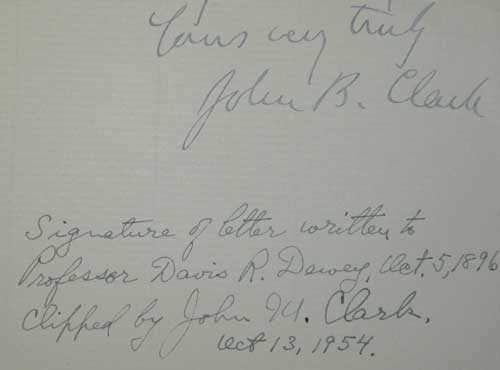 Yours very truly
John B. Clark
Signature of letter written to
Professor Davis R. Dewey, Oct. 5, 1896
clipped by John M. Clark.
Oct 13, 1954.